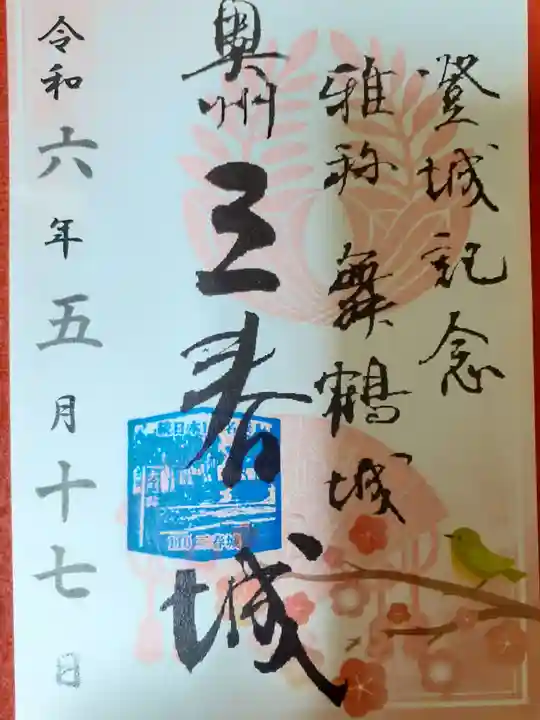 登城記念
雅称 舞鶴城
奥州 三春城
令和六年五月十七日
続日本100名城
110 三春城